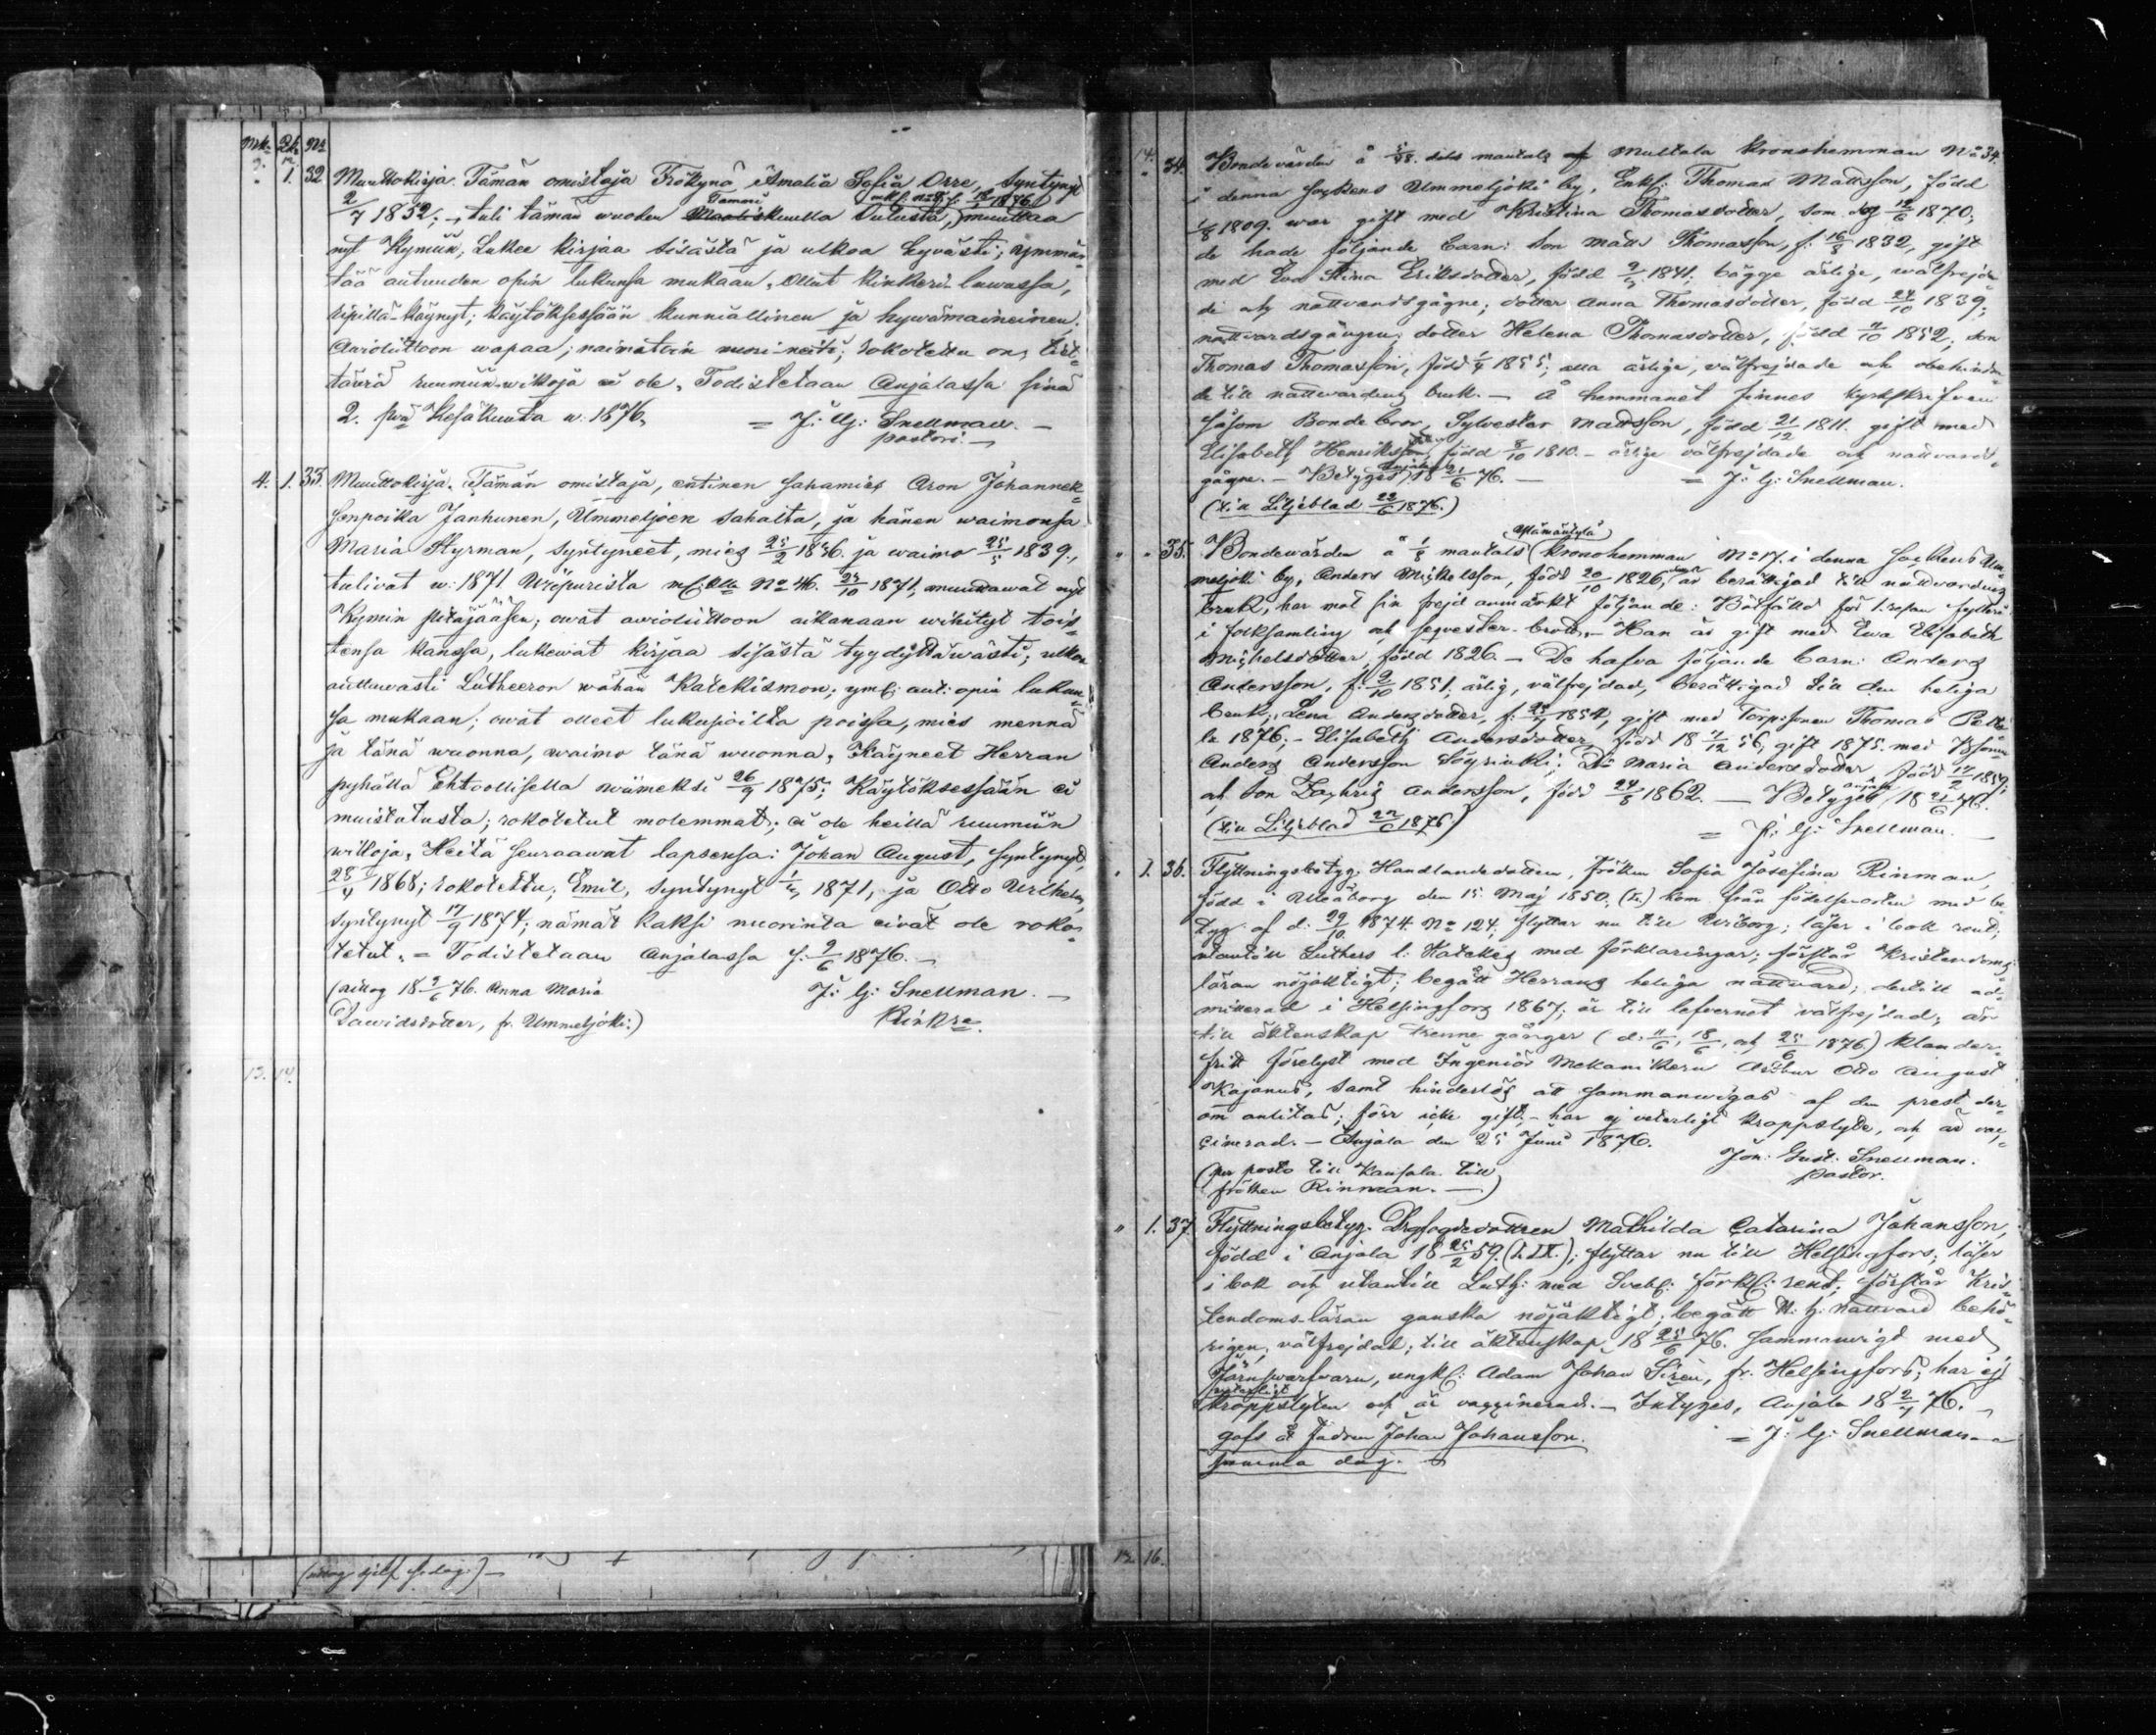 Mk. Pk. No
1. 32 Muuttokirja. Tämän omistaja Frökynä Amalia Sofia Orre, syntynyt
2/7 1852; tuli tämän wuoden Tammikuulla Oulusta, muuttaa
nyt Kymiin, Lukee kirjaa sisästä ja ulkoa hyvästi; ymmär-
tää autuuden opin lukunsa mukaan, ollut kinkeri luwussa,
ripillä-käynyt; käytöksessään kunniallinen ja hywämaineinen.
Awioliittoon wapaa; naimatoin nuori neiti; rokotettu on, tiet-
täwiä ruumiin-wikoja ei ole. Todistetaan Anjalassa sinä
2. pnä Kesäkuuta w. 1876. = J: G: Snellman. -
pastori. -
4. 1. 33. Muuttokirja. Tämän omistaja, entinen sahamies Aron Johannek-
senpoika Janhunen, Ummeljoen sahalta, ja hänen waimonsa
Maria Styrman, syntyneet, mies 25/2 1836. ja waimo 25/5 1839.,
tulivat w: 1871 Wiipurista No 46. 23/10 1871, muuttawat nyt
Kymin pitäjääsen; owat awioliittoon aikanaan wihityt tois-
tensa kanssa, lukewat kirjaa sisästä tyydyttäwästi, ulkoa
auttuwasti Lutheeron wähän Katekismon; ym: aut: opin lukun-
sa mukaan; owat olleet lukusioilta poissa, mies menna
ja tänä wuonna, waimo tänä wuonna, Käyneet Herran
pyhällä Ehtoollisella wiimeksi 26/9 1875; Käytöksessään ei
muistutusta; rokotetut molemmat; ei ole heillä ruumiin
wikoja. Heitä seuraawat lapsensa: Johan August, syntynyt
28/4 1868; rokotettu; Emil, syntynyt 1871, ja Otto Wilhelm,
syntynyt 17/9 1874; nämät kaksi nuorinta eivät ole roko-
tetut. = Todistetaan Anjalassa s. 9/6 1876. -
(uttog 18 9/6 76. Anna Maria J: G: Snellman. -
Dawidsdotter, fr. Ummeljoki:) Kirkh:
13. 14.
(uttog sjelf s. dag.) -
14. 34. Bondevärden å mantals Multala kronohemman No 34
i denna sockens Ummeljoki by, Enkl: Thomas Mattsson, född
1/8 1809. war gift med Kristina Thomasdotter, som dog 1870;
de hade följande barn: Son Matts Thomasson, f. 16/8 1832, gift
med Eva Stina Eriksdotter, född 1841; bägge ärlige, wälfrejda-
de och nattvardsgägne; dotter Anna Thomasdotter, född 24/10 1839;
nattvardsgången; dotter Helena Thomasdotter, född 1852; son
Thomas Thomasson, född 1855; alla ärlige, välfrejdade och obehindra-
de till nattwardens bruk. - Å hemmanet finnes kyrkskrifven
såsom Bondebror, Sylvester Mattsson, född 21/12 1811. gift med
Elisabeth Henriksson, född 8/10 1810. - ärlige välfrejdade och nattvards-
gägne. - Betygas, Anjala 18 21/6 76. - = J: G: Snellman.
(till Liljeblad 22/6 1876.)
" " 35. Bondewärden å 1/8 mantals kronohemman No 17. i denna sockens Um-
meljoki by, Anders Michelsson, född 20/10 1826, är berättigad till nattvardens
bruk, har mot sin frejd anmärkt följande: Bötfälld för 1. resan fylleri
i folksamling och seqvester-brott. - Han är gift med Ewa Elisabeth
Michelsdotter, född 1826. - De hafva följande barn: Anders
Andersson, f. 9/10 1851; ärlig, välfrejdad, berättigad till den heliga
bruk; Lena Andersdotter, f. 1854, gift med Torpsonen Thomas
1876; - Elisabeth Andersdotter född 18 /12 56, gift 1875. med
Anders Andersson; Do Maria Andersdotter född 1859;
och son Zachris Andersson, född 24/8 1862. - Betygas Anjala 18 21/6 76.
(till Liljeblad 22/6 1876) = J: G: Snellman. -
" 1. 36. Flyttningsbetyg. Handlandedottern, fröken Sofia Josefina Rinman,
född i Uleåborg den 15. Maj 1850, kom från födelseorten med be-
tyg af d. 29/10 1874. No 124, flyttar nu till Wiborg; läser i bok rent;
utantill Luthers l. Kateches med förklaringar; förstår kristendoms
läran nöjaktigt; begått Herrans heliga nattvard; dertill ad-
mitterad i Helsingfors 1867; är till lefvernet välfrejdad; är
till äktenskap trenne gånger (d. 11/6, 18/6, och 25/6 1876) klander-
fritt förelyst med Ingeniör Mekanikern Arthur Otto August
Kajanus, samt hinderlös att sammanwigas af den prest der-
om anlitas; förr icke gift; - har ej veterligt kroppslyte, och är vac-
cinerad. - Anjala den 25 Juni 1876. Joh. Gust. Snellman.
(per posto till Kausala till pastor.
fröken Rinman. -)
" 1. 37. Flyttningsbetyg. Dottren Mathilda Catarina Johansson,
född i Anjala 18 25/2 59. flyttar nu till Helsingfors; läser
i bok och utantill Luth: med Sveb: förkl: rent; förstår kris-
tendomsläran ganska nöjaktigt; begått H. h. nattvard behö-
rigen; välfrejdad; till äktenskap 18 25/6 76. sammanwigd med
Järnswarfvaren, ungk: Adam Johan Siren, fr. Helsingfors; har ej
veterligt kroppslyten och är vaccinerad. - Intygas, Anjala 18 2/7 76. -
gafs åt fadren Johan Johansson. = J: G: Snellman. -
samma dag. -
15. 16.